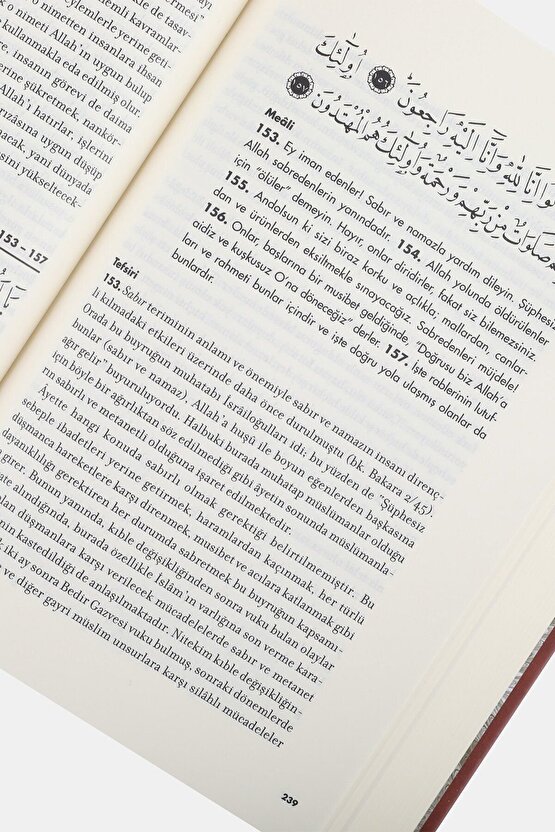 rmesi"
ekilde de tasav-
demî kavramlar-
eylemleriyle yerine geti-
o nimeti Allah'ın uygun bulup
nimetten insanlara ihsan
e kullanmakla eda edilmiş olur.
erine, insanın görevi de daima
şükretmek, nankör-
Allah'ı hatırlar, işlerini
rızâsına uygun düşüp
acak, yani dünyada
ni yükseltecek-
153-157
اُو۬لٰٓئِكَ
وَاِنَّٓا اِلَيْهِ رَاجِعُونَۜ ﴿١٥٦﴾
وَرَحْمَةٌ وَاُو۬لٰٓئِكَ هُمُ الْمُهْتَدُونَ ﴿١٥٧﴾
Meâli
153. Ey iman edenler! Sabır ve namazla yardım dileyin. Şüphesiz
Allah sabredenlerin yanındadır. 154. Allah yolunda öldürülenler
için "ölüler" demeyin. Hayır, onlar diridirler, fakat siz bilemezsiniz
155. Andolsun ki sizi biraz korku ve açlıkla; mallardan, canlar-
dan ve ürünlerden eksiltmekle sınayacağız. Sabredenleri müjdele!
156. Onlar, başlarına bir musibet geldiğinde, "Doğrusu biz Allah'a
aidiz ve kuşkusuz O'na döneceğiz" derler. 157. İşte rablerinin lutuf-
ları ve rahmeti bunlar içindir ve işte doğru yola ulaşmış olanlar da
bunlardır.
Tefsiri
153. Sabır teriminin anlamı ve önemiyle sabır ve namazın insanı dirençli
li kılmadaki etkileri üzerinde daha önce durulmuştu (bk. Bakara 2/45).
Orada bu buyruğun muhatabı İsrâiloğulları idi; bu yüzden de "Şüphesiz
bunlar (sabır ve namaz), Allah'a hûşû ile boyun eğenlerden başkasına
ağır gelir" buyuruluyordu. Halbuki burada muhatap müslümanlar olduğu
için böyle bir ağırlıktan söz edilmediği gibi âyetin sonunda müslümanla-
rın sabırlı ve metanetli olduğuna işaret edilmektedir.
Âyette hangi konuda sabırlı olmak gerektiği belirtilmemiştir. Bu
sebeple ibadetleri yerine getirmek, haramlardan kaçınmak, her türlü
düşmanca hareketlere karşı direnmek, musibet ve acılara katlanmak gibi
dayanıklılığı gerektiren her durumda sabretmek bu buyruğun kapsamı-
girer. Bunun yanında, kıble değişikliğinden sonra vuku bulan olaylar
ate alındığında, burada özellikle İslâm'ın varlığına son verme kara-
olan düşmanlara karşı verilecek mücadelelerde sabır ve metanet
nin kastedildiği de anlaşılmaktadır. Nitekim kıble değişikliğin-
k iki ay sonra Bedir Gazvesi vuku bulmuş, sonraki dönemlerde
ve diğer gayri müslim unsurlara karşı silâhlı mücadeleler
239